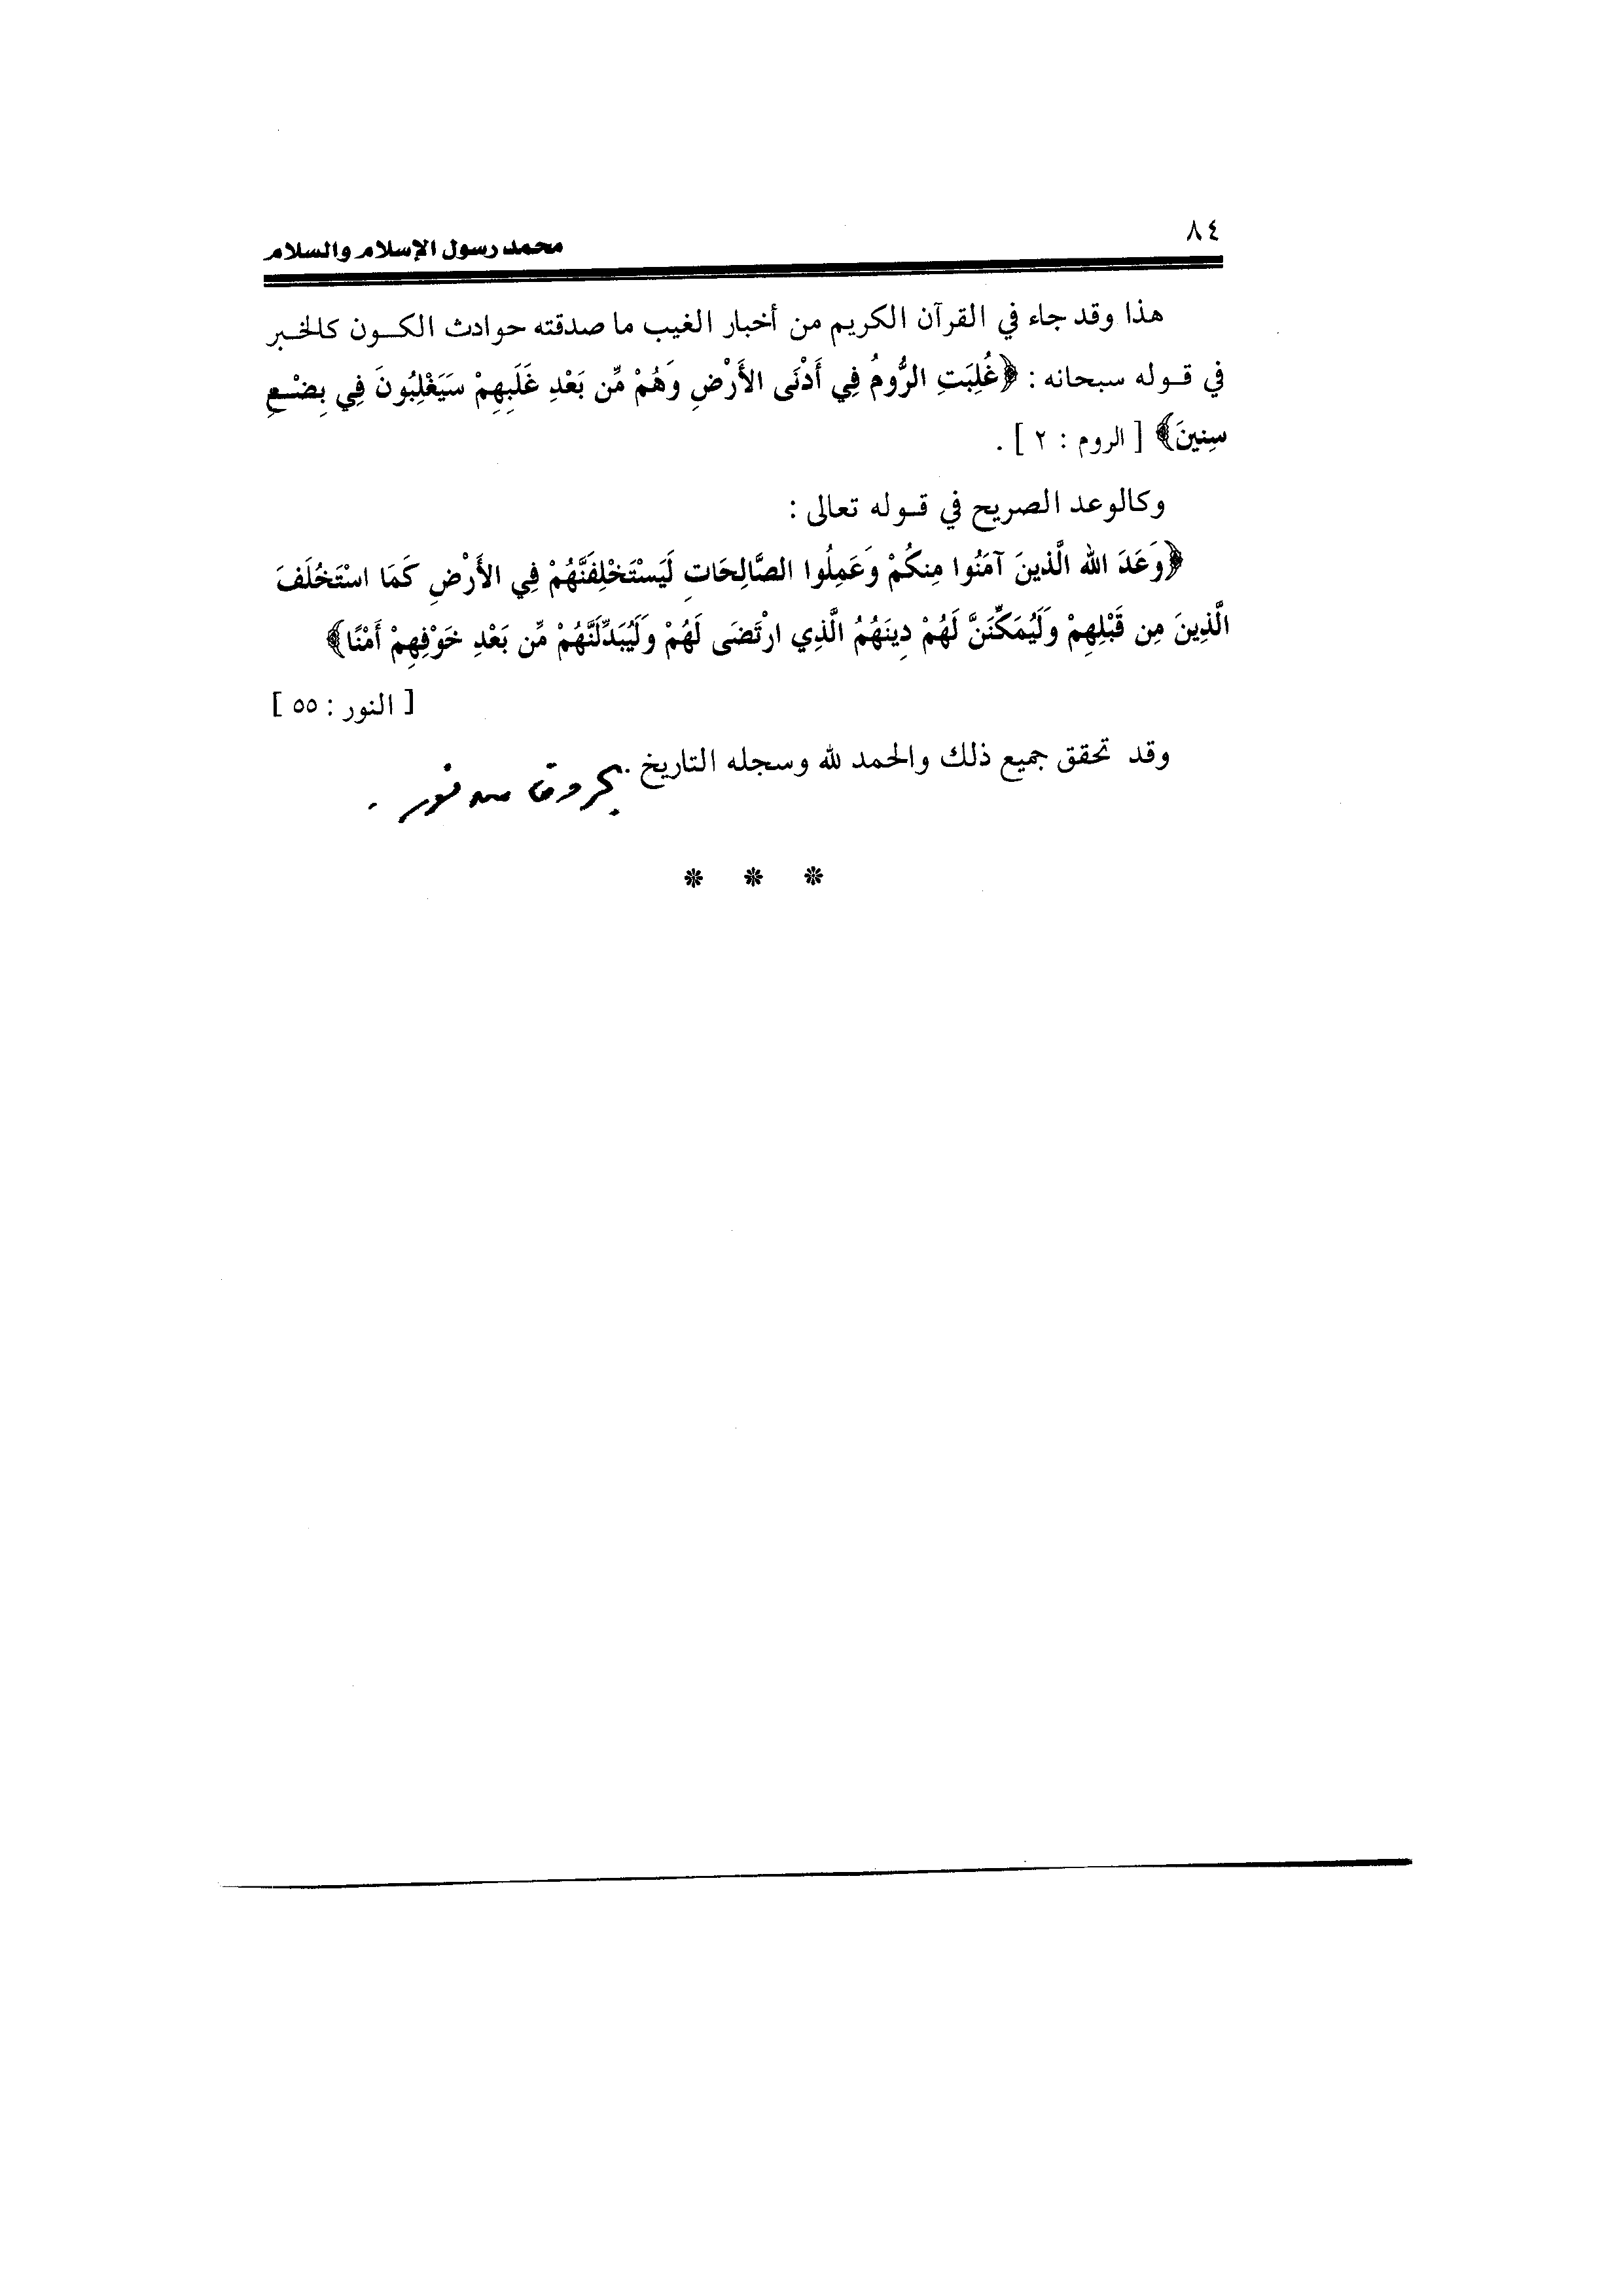 ٨٤
محمد رسول الإسلام والسلام
هذا وقد جاء في القرآن الكريم من أخبار الغيب ما صدقته حوادث الكون كالخبر
في قوله سبحانه : ﴿غُلِبَتِ الرُّومُ فِي أَدْنَى الأَرْضِ وَهُمْ مِّن بَعْدِ غَلَبِهِمْ سَيَغْلِبُونَ فِي بِضْعِ
سِنِينَ﴾ [ الروم : ٢ ] .
وكالوعد الصريح في قوله تعالى :
﴿وَعَدَ الله الَّذينَ آمَنُوا مِنكُمْ وَعَمِلُوا الصَّالِحَاتِ لَيَسْتَخْلِفَنَّهُمْ فِي الأَرْضِ كَمَا اسْتَخْلَفَ
الَّذِينَ مِن قَبْلِهِمْ وَلَيُمَكِّنَنَّ لَهُمْ دِينَهُمُ الَّذِي ارْتَضَى لَهُمْ وَلَيُبَدِّلَنَّهُمْ مِّن بَعْدِ خَوْفِهِمْ أَمْنًا﴾
[ النور : ٥٥ ]
وقد تحقق جميع ذلك والحمد لله وسجله التاريخ .
* * *